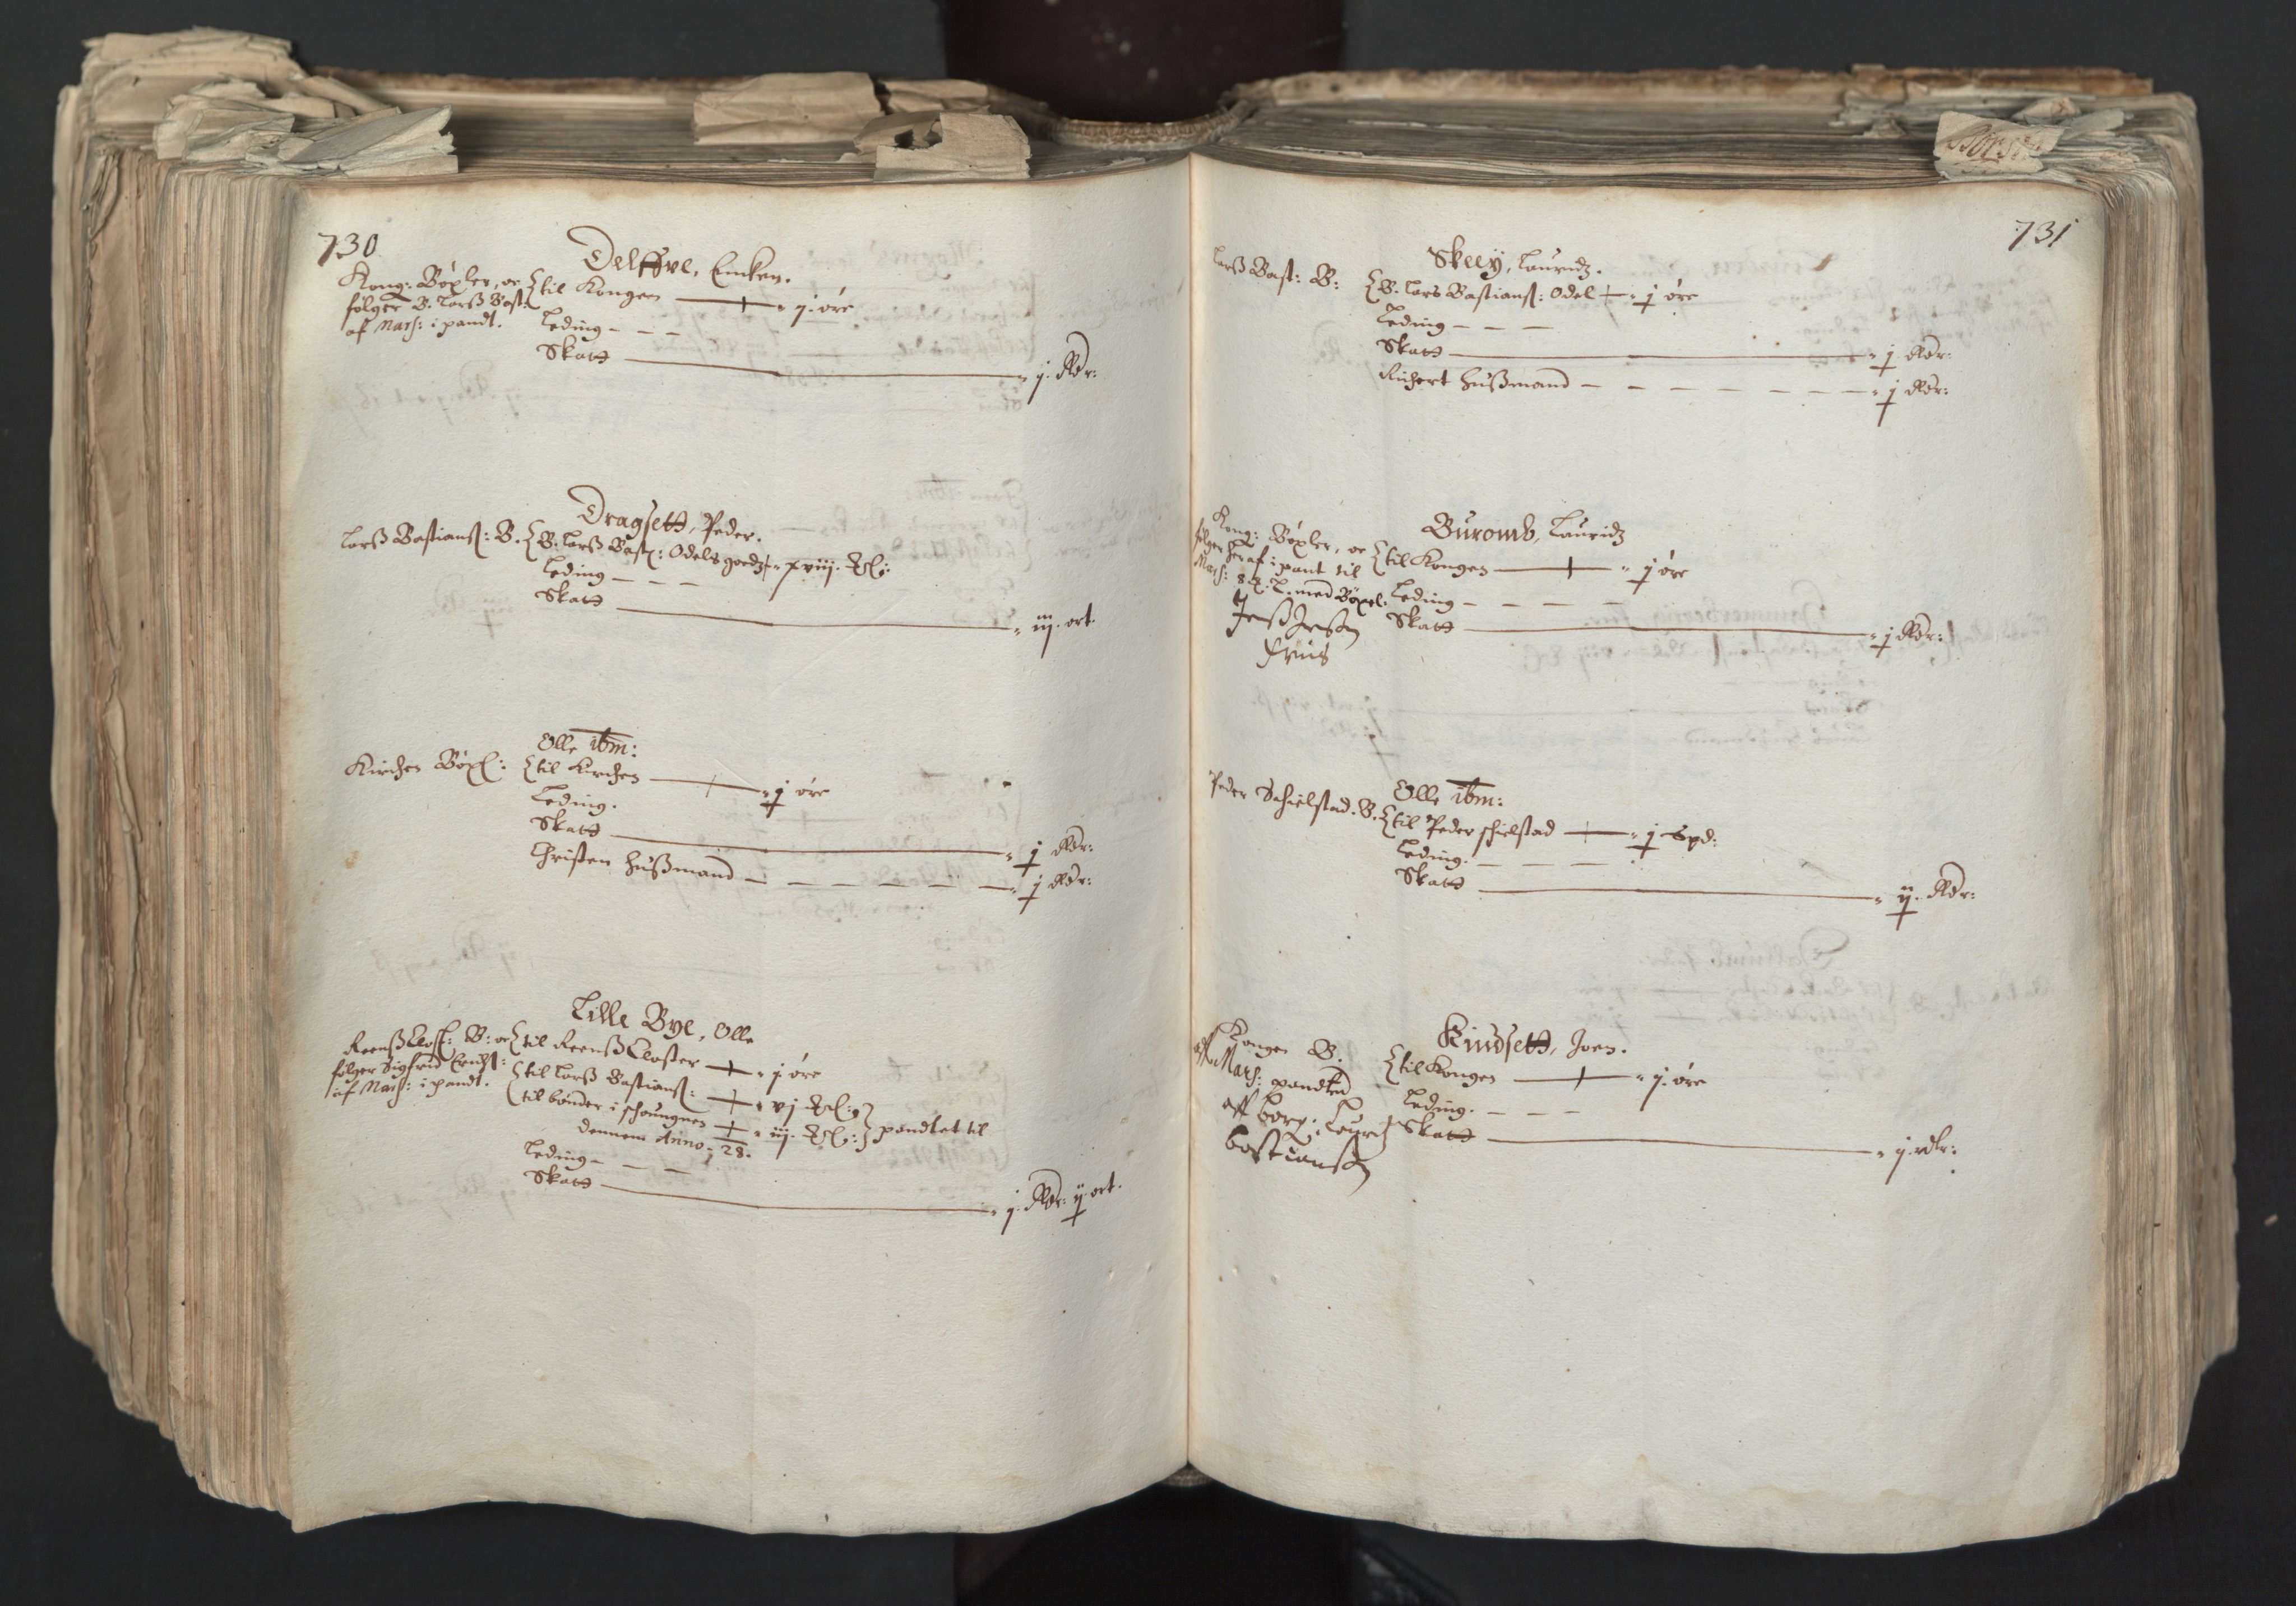 730
Delffue, Encken.
Kong: Böxler, oc
følger B. Larß Bast:
af Mats: i pandt.
til Kongen — ij. öre
Leding – – –
Skatt — j. Rdr:
Dragsett, Peder.
Larß Bastianß: B.
B. Larß Bast: Odels goedz – xviij. Mkl:
Leding – – –
Skatt — iij. ort.
Olle ibm:
Kirchen Böxl:
til Kirchen — j öre
Leding.
Skatt — j Rdr:
Christen Hußmand – – – – – – j Rdr:
Lille Bye, Olle
Reenß Clost: B: oc
følger Sigfrid Erichß:
af Mats: i pandt.
til Reenß Closter — j öre
til Larß Bastianß: — vj Mkl: 9
til bönder i schougnen — iij. Mkl: pandtet til
dennem Anno: 28.
Leding – – –
Skatt — j. Rdr: ij. ort.
731
Skeey, Lauridz.
Larß Bast: B:
B. Lars Bastianß: Odel — j öre
Leding – – –
Skatt — j Rdr:
Richert Hußmand – – – – – – – j Rdr:
Buromb, Lauridz
Kong: Böxler, oc
følger her af i pant til
Mats: 8 M. L. med Böxel:
Jenß Jenßn
Friis
til Kongen — j öre
Leding – – – –
Skatt — j Rdr:
Olle ibm:
Peder Schielstad. B.
til Peder schielstad — j Spd:
Leding. – – – –
Skatt — ij. Rdr:
Kindsett, Joen.
Kongen B.
aff Mats: pandted
aff borg: Lauridz
bastianßn
til Kongen — j. öre
Leding. – – –
Skatt — j. rdlr: